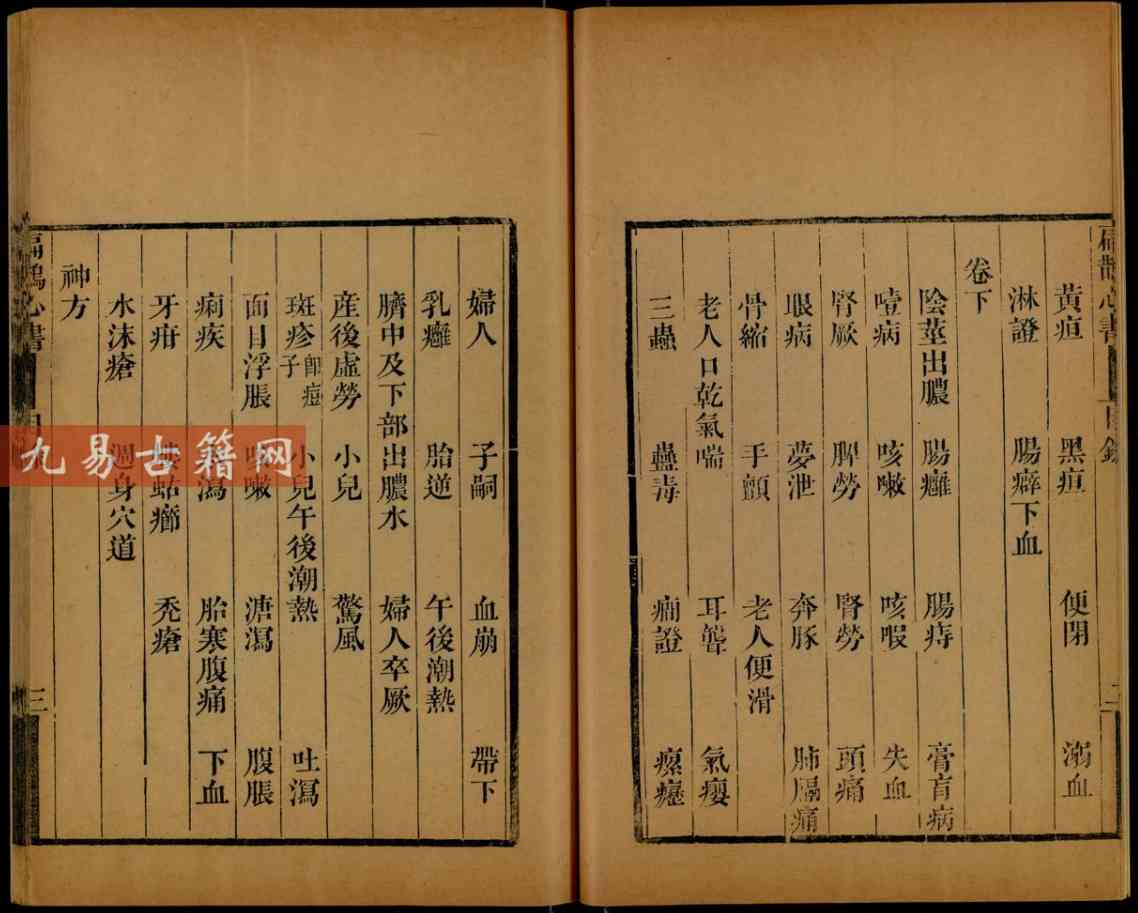 扁鵲心書 目錄 二
黃疸 黑疸 便閉 溺血
淋證 腸癖下血
卷下
陰莖出膿 腸癰 腸痔 膏肓病
噎病 咳嗽 咳暇 失血
腎厥 脾勞 腎勞 頭痛
眼病 夢泄 奔豚 肺膈痛
骨縮 手顫 老人便滑
老人口乾氣喘 耳聾 氣癭
三蟲 蠱毒 癎證 瘰癧
婦人 子嗣 血崩 帶下
乳癰 胎逆 午後潮熱
臍中及下部出膿水 婦人卒厥
産後虛勞 小兒 驚風
斑疹即痘子 小兒午後潮熱 吐瀉
面目浮脹 咳嗽 溏瀉 腹脹
痢疾 瀉 胎寒腹痛 下血
牙疳 蛄癤 禿瘡
水沫瘡 週身穴道
神方
扁鵲心書 三
九易古籍网